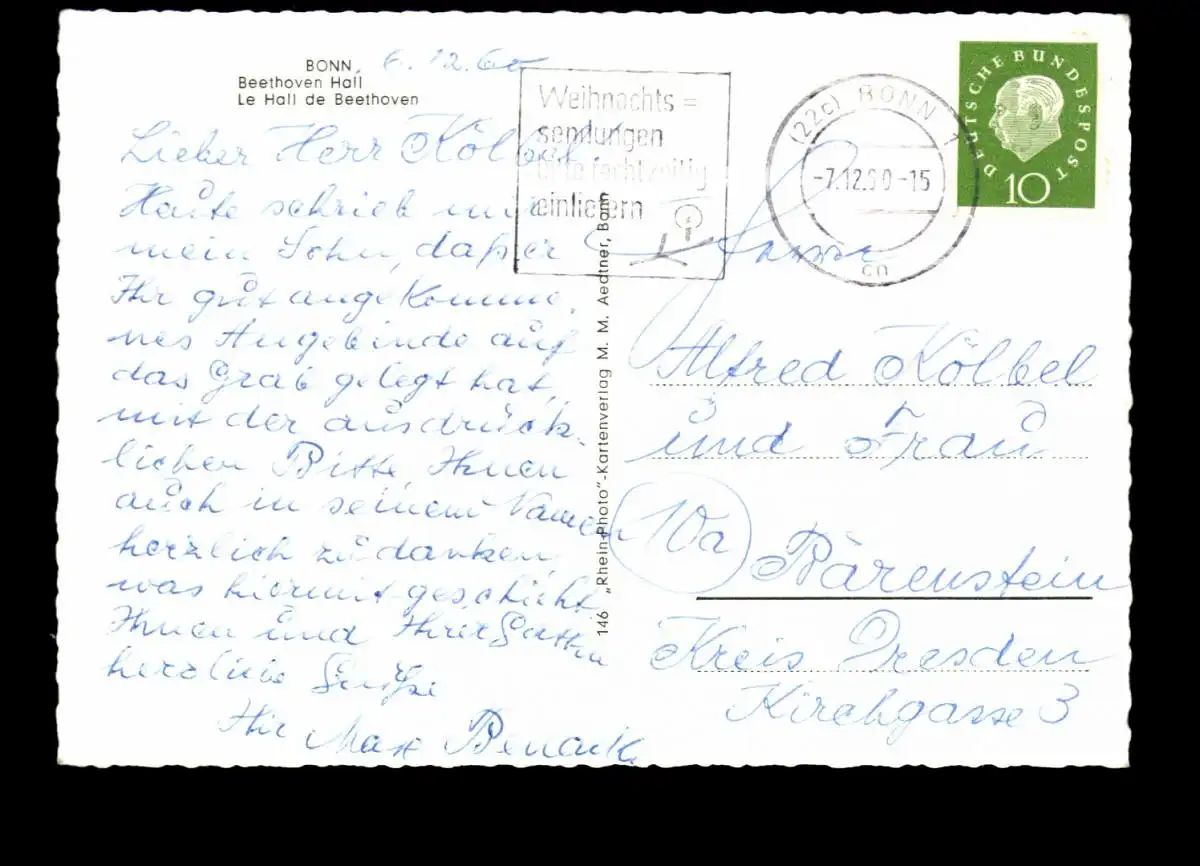 BONN, 6.12.60
Beethoven Hall
Le Hall de Beethoven
Lieber Herr Kölbel
Heute schrieb mir
mein Sohn, daß er
Ihr gut angekomme,
nes Angebinde auf
das Grab gelegt hat,
mit der ausdrück-
lichen Bitte, Ihnen
auch in seinem Namen
herzlich zu danken,
was hiermit geschieht
Ihnen und Ihrer Gattin
herzliche Grüße
Ihr Max
Weihnachts=
sendungen
bitte rechtzeitig
einliefern
(22c) BONN 1
-7.12.60-15
cn
DEUTSCHE BUNDESPOST
10
146 „Rhein-Photo"-Kartenverlag M. M. Aedtner, Bonn
Alfred Kölbel
und Frau
10a
Bärenstein
Kreis Dresden
Kirchgasse 3